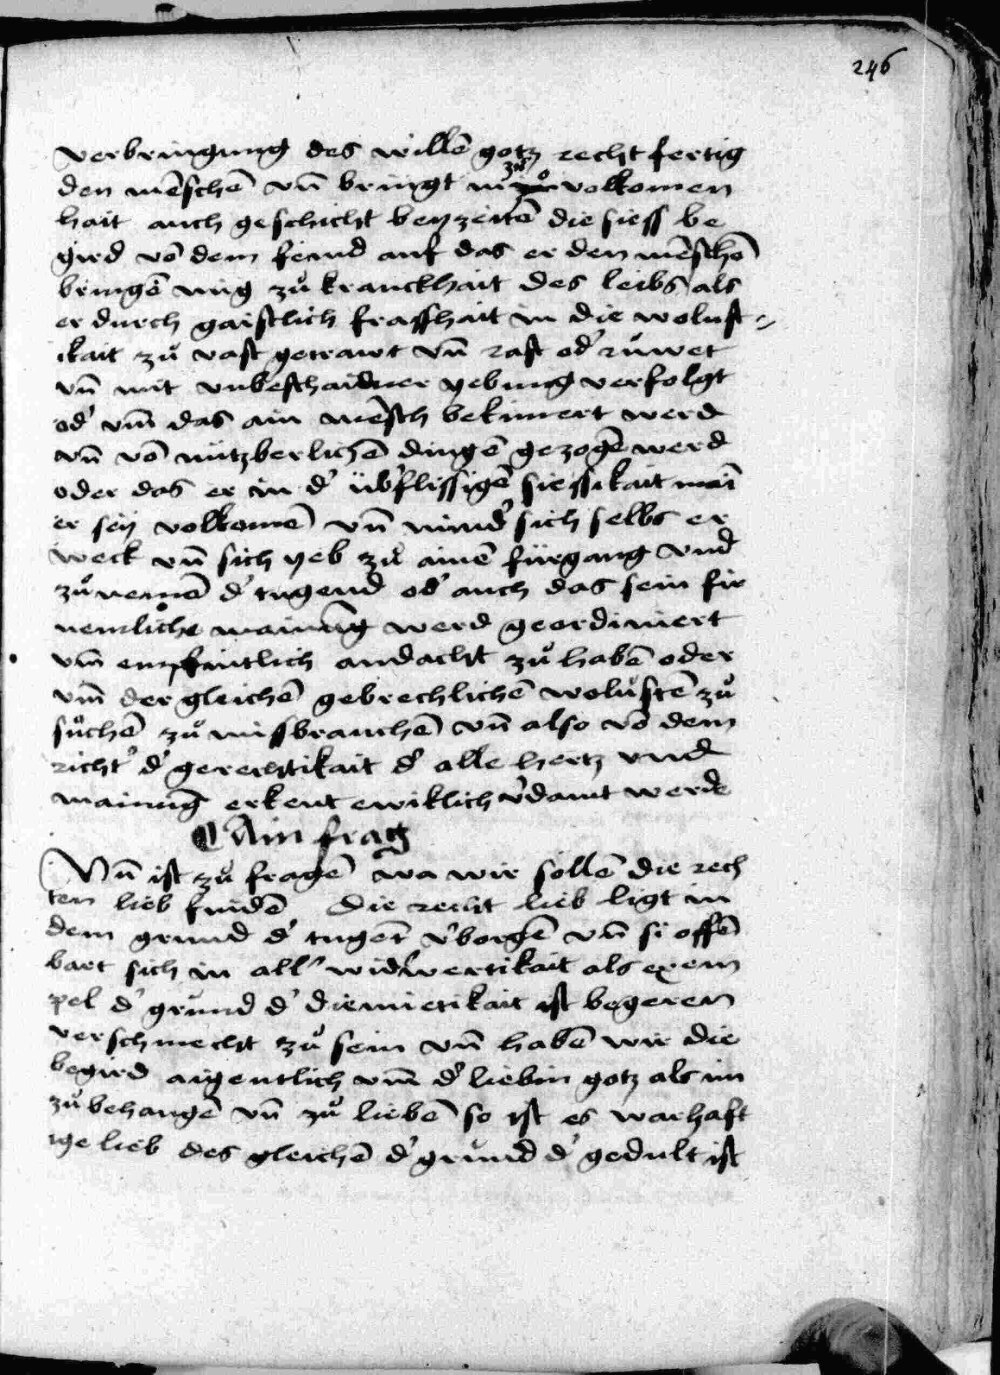 246
verbringung des willē gotz recht fertig
den mēschē vn̄ bringt in zů volkomen
hait auch geschicht beyzeitē die siess be
gird vō dem feind auf das er den mēschē
bringē mig zů kranckhait des leibs als
er durch gaistlich frasshait in die wolust
ikait zů vast getrawt vn̄ rast od' růwet
vn̄ mit vnbeschaidner yebung verfolgt
od' vm̄ das ain mēsch bekimert werd
vn̄ vō nützberlichē dingē gezogē werd
oder das er in d' üb'flissigē siessikait main
er sey volkomē vn̄ mind' sich selbs er
weck vn̄ sich yeb zů ainē fürgang vnd
zůnemē d' tugend od' auch das sein fir
nemliche mainūg werd geordiniert
vm̄ empfintlich andacht zů habē oder
vm̄ der gleichē gebrechlichē wolustē zů
sůchē zů missbrauchē vn̄ also vō dem
richt' d' gerechtikait d' alle hertz vnd
mainūg erkent ewiklich v'damt werde
¶ Ain frag
Nn̄ ist zů fragē wa wir sollē die rech
ten lieb findē die recht lieb ligt in
dem grund d' tugēt v'borgē vn̄ si offē
bart sich in all' wid'wertikait als exem
pel d' grund d' diemietikait ist begeren
verschmecht zů sein vn̄ habē wir die
begird aigentlich vm̄ d' liebin gotz als im
zů behangē vn̄ zů liebē so ist es warhaft
ige lieb des gleichē d' grund d' gedult ist